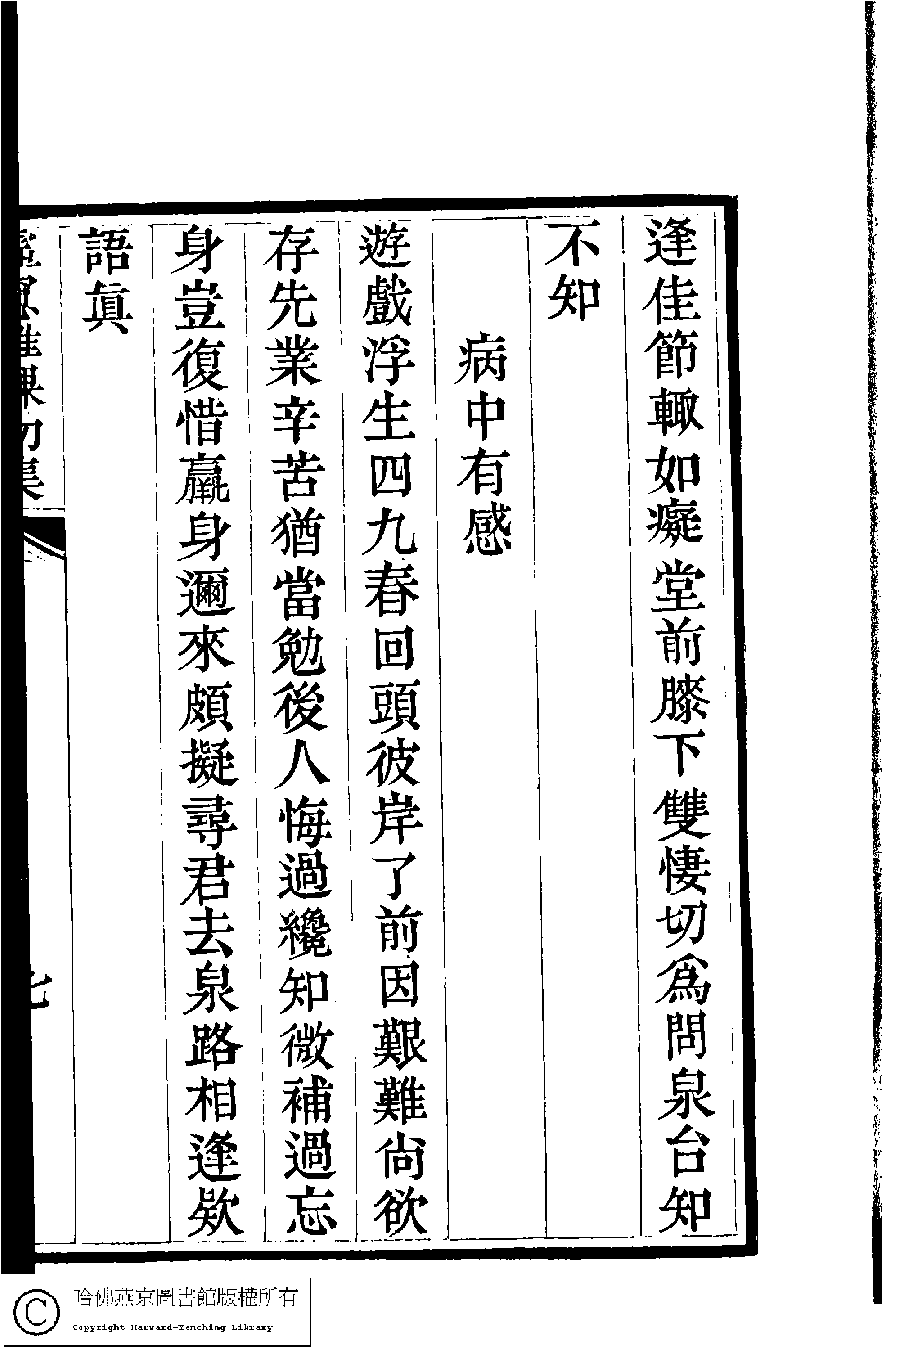 逢佳節輙如癡堂前膝下雙悽切為問泉台知
不知
病中有感
遊戲浮生四九春回頭彼岸了前因艱難尙欲
存先業辛苦猶當勉後人悔過纔知微補過忘
身豈復惜羸身邇來頗擬尋君去泉路相逢欵
語眞
哈佛燕京圖書館版權所有
Copyright Harvard-Yenching Library